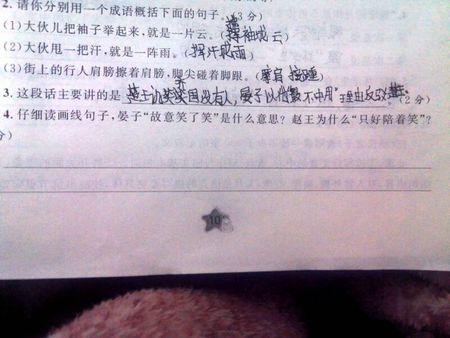 2. 请你分别用一个成语概括下面的句子。(3分)
(1)大伙儿把袖子举起来,就是一片云。(举袖成云)
(2)大伙甩一把汗,就是一阵雨。(挥汗成雨)
(3)街上的行人肩膀擦着肩膀,脚尖碰着脚跟。(摩肩接踵)
3. 这段话主要讲的是 楚王讥笑齐国没有人,晏子以
(2分)
4. 仔细读画线句子,晏子“故意笑了笑”是什么意思? 赵王为什么“只好陪着笑”?
分)
10